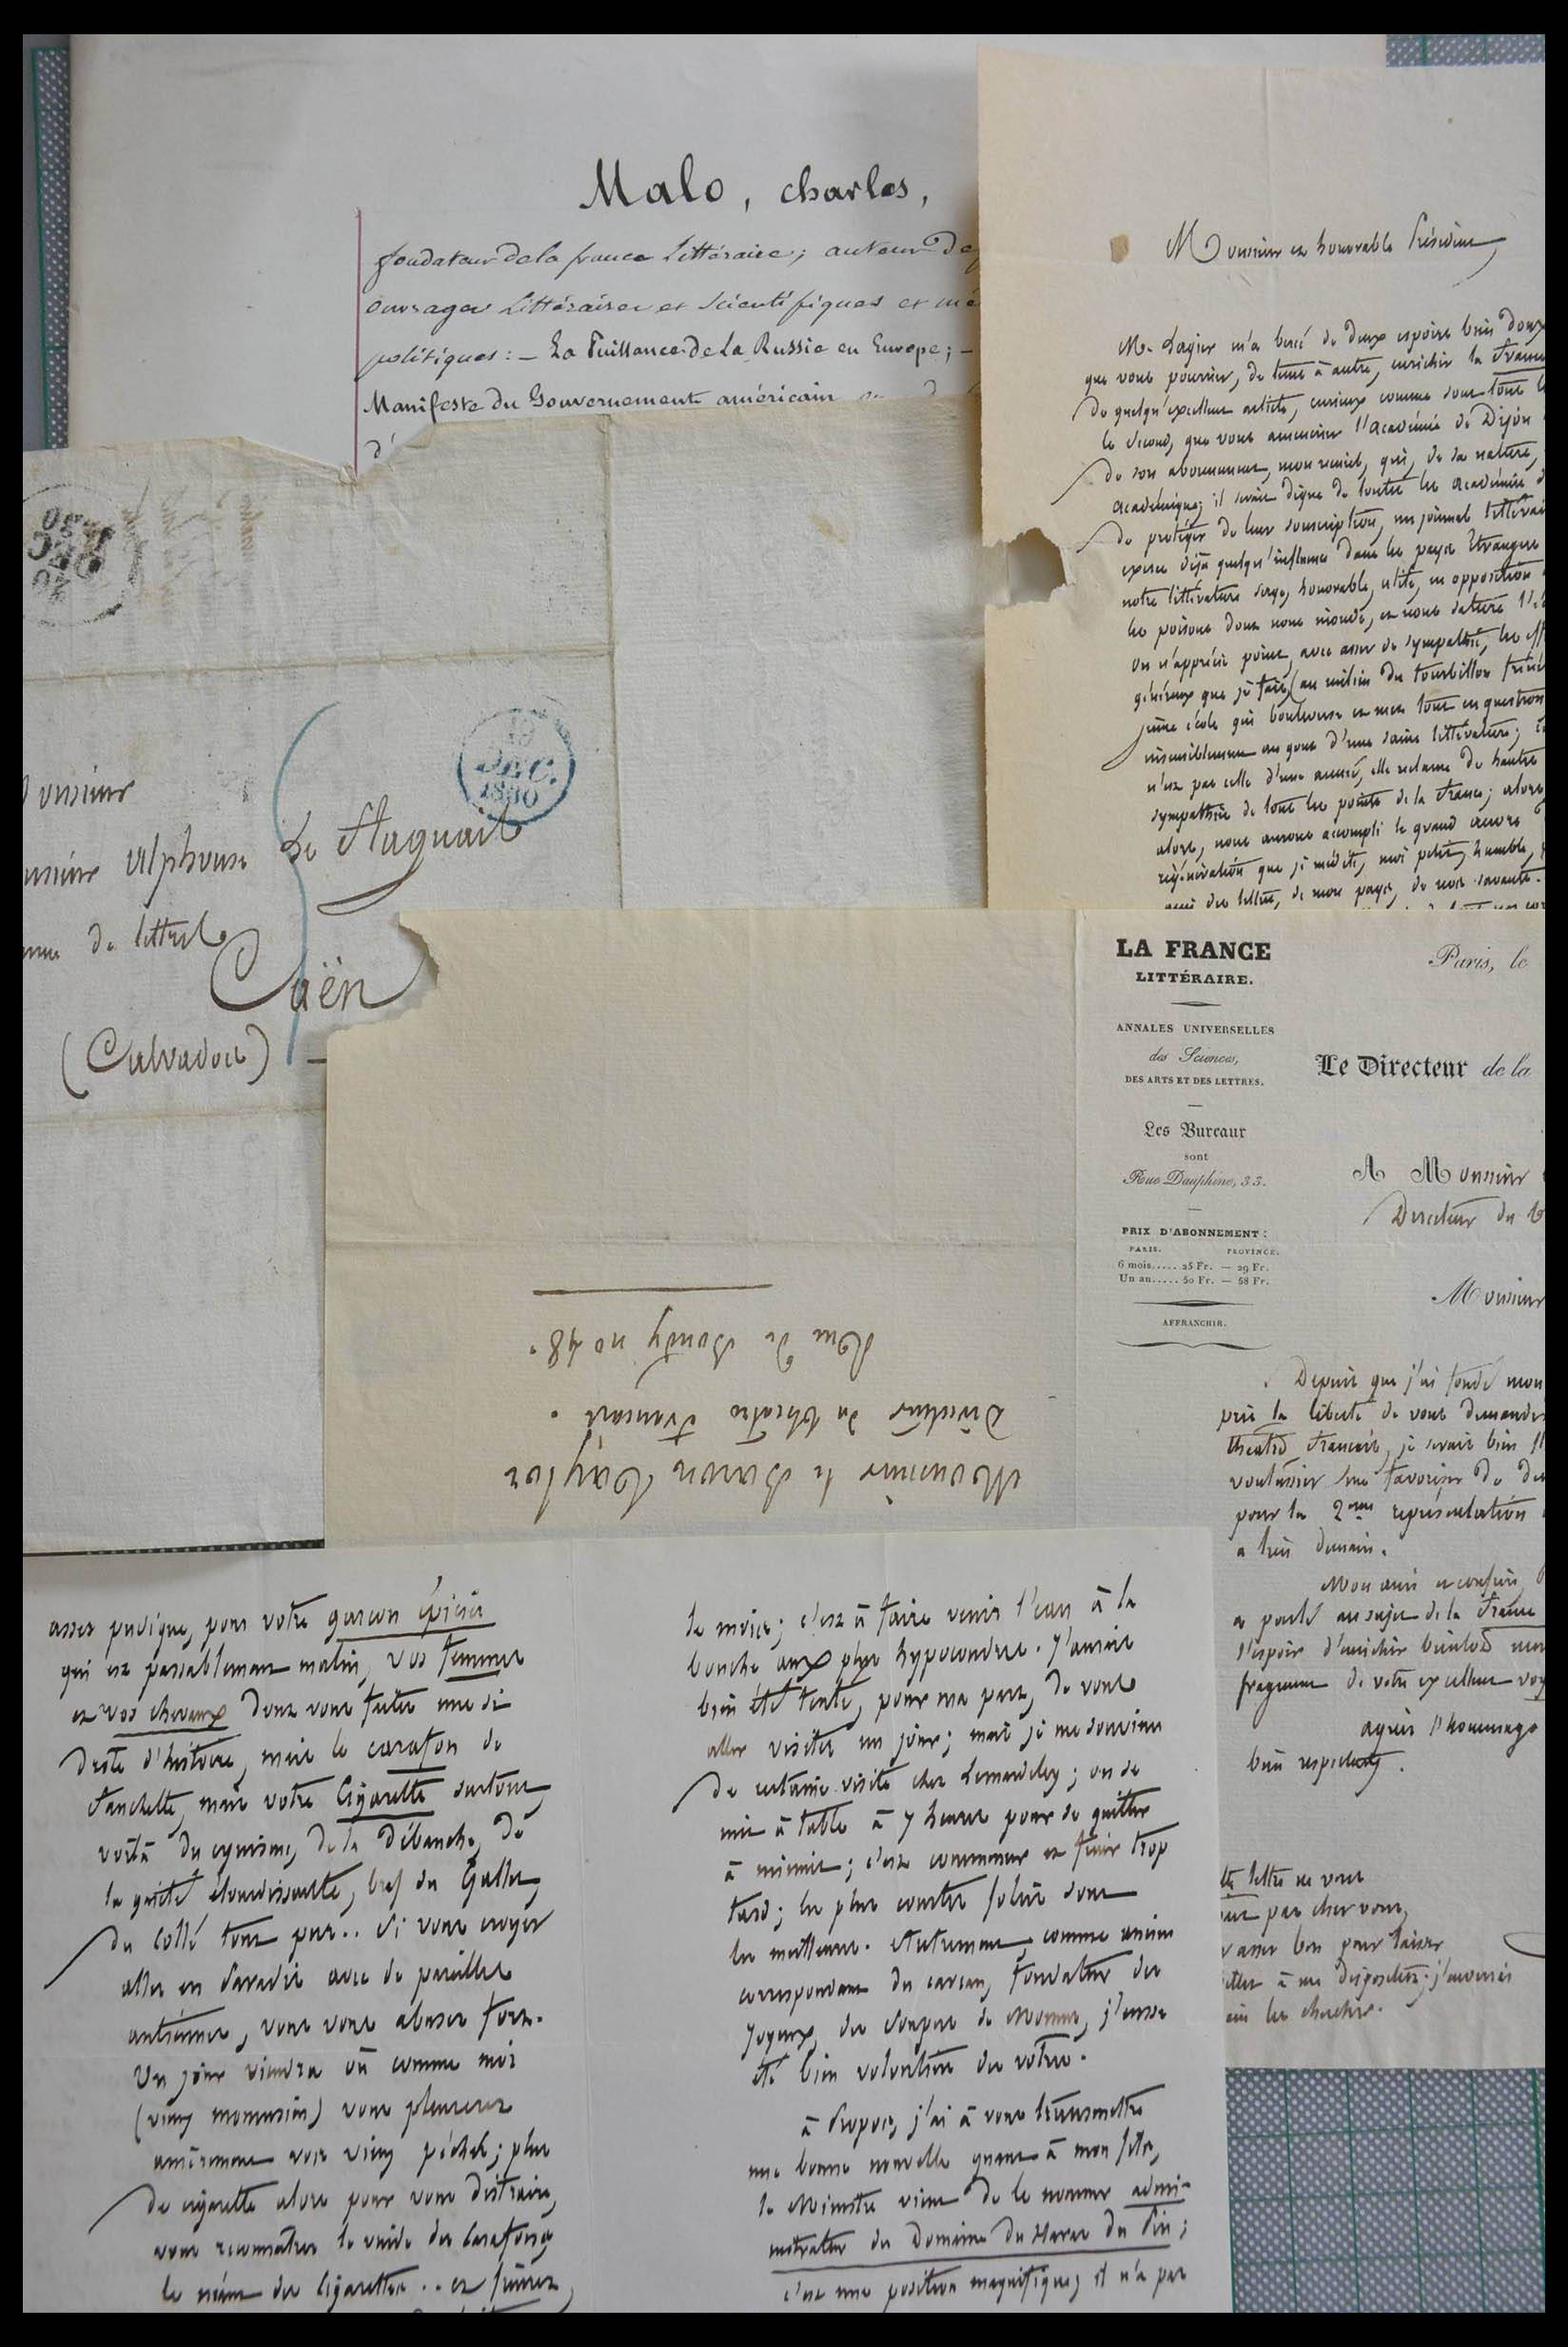 Malo, charles,
fondateur de la france Littéraire; auteur de
ouvrages littéraires et scientifiques et
politiques: - La Puissance de La Russie en Europe; -
Manifeste du Gouvernement américain
d'
Monsieur et honorable Président,
M. Lagier m'a bercé de deux espoirs bien doux
que vous pourriez, de tems à autre, enrichir la France
de quelqu'excellent article, curieux comme sont tous
le second, que vous amèneriez l'académie de Dijon
de son abonnement, mon recueil, qui, de sa nature,
académique; il serait digne de toutes les académies
de protéger de leur souscription, un journal littéraire
exerce déjà quelqu'influence dans les pays Etrangers
notre littérature sage, honorable, utile, en opposition
les poisons dont nous inonde, et nous sature
on n'apprécie point, avec assez de sympathie, les
généreux que je fais (au milieu du tourbillon
jeune école qui bouleverse et met tout en question
insensiblement au gout d'une saine littérature;
n'est pas celle d'une année, elle réclame de hautes
sympathies de tous les points de la France; alors
alors, nous aurons accompli le grand œuvre
régénération que je médite, moi petit, humble,
ami des lettres, de mon pays, de nos savants.
20
DEC
30
19
DEC.
1830
Monsieur
Monsieur Alphonse Le Flaguais
de lettres
Caën
(Calvados)
Monsieur le Baron Taylor
Directeur du théatre Francais.
Rue de Bondy no 48.
LA FRANCE
LITTÉRAIRE.
ANNALES UNIVERSELLES
des Sciences,
DES ARTS ET DES LETTRES.
Les Bureaux
sont
Rue Dauphine, 33.
PRIX D'ABONNEMENT:
PARIS. PROVINCE.
6 mois..... 25 Fr. — 29 Fr.
Un an..... 50 Fr. — 58 Fr.
AFFRANCHIR.
Paris, le
Le Directeur de la
A Monsieur
Directeur du
Monsieur
Depuis que j'ai fondé mon
pris la liberté de vous demander
théatre Francais, je serais bien
voulussiez me favoriser de
pour la 2me représentation
a lieu demain.
Mon ami et confrère
a parlé au sujet de la France
l'espoir d'enrichir bientot mon
fragment de votre excellent
agréez l'hommage
bien respectueux.
lettre ne vous
pas chez vous,
assez bon pour laisser
à ma disposition; j'enverrais
les chercher.
assez pudique, pour votre garcon épicier
qui est passablement malin, vos femmes
et vos chevaux dont vous faites une si
drole d'histoire, mais le carafon de
Fanchette, mais votre Cigarette surtout,
voilà du cynisme, de la débauche, de
la gaieté étourdissante, bref du Gallet,
du Collé tout pur.. Si vous croyez
aller en Paradis avec de pareilles
antiennes, vous vous abusez fort.
Un jour viendra où comme moi
(vieux momusien) vous pleurerez
amèrement vos vieux péchés; plus
de cigarette alors pour vous distraire,
vous reconnaitrez le vuide des carafons
le néant des Cigarettes.. et
le moins; c'est à faire venir l'eau à la
bouche aux plus hypocondres. J'aurais
bien été tenté, pour ma part, de vous
aller visiter un jour; mais je me souviens
de certaine visite chez Lemardeley; on se
mit à table à 7 heures pour se quitter
à minuit; c'est commencer et finir trop
tard; les plus courtes folies sont
les meilleures. Autrement, comme ancien
correspondant du caveau, fondateur des
Joyeux, des Soupers de Momus, j'eusse
été bien volontiers des votres.
à Propos, j'ai à vous transmettre
une bonne nouvelle quant à mon fils,
le Ministre vient de le nommer admi-
nistrateur du Domaine du Haras du Pin;
c'est une position magnifique; il n'a pas